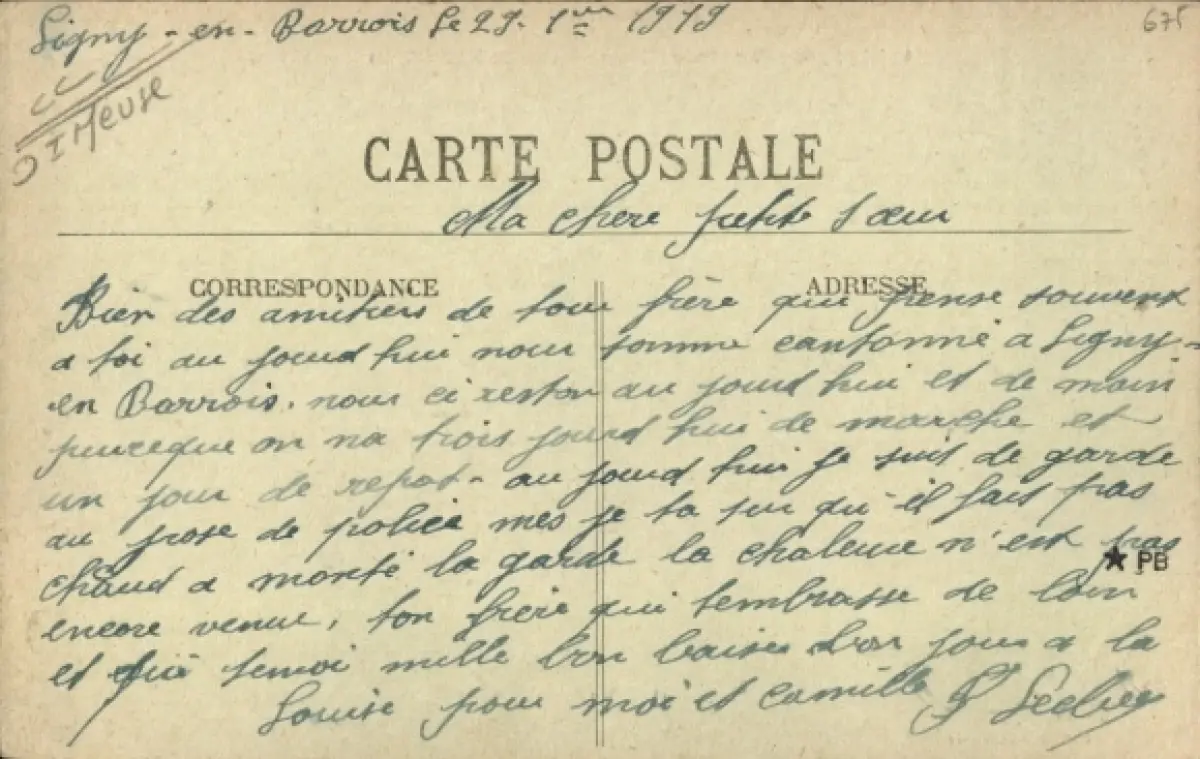 Ligny-en-Barrois le 29. 1er 1919
675
Meuse
CARTE POSTALE
Ma chere petite sœur
CORRESPONDANCE
ADRESSE
Bien des amitiers de ton frère qui pense souvent
a toi au jourd hui nous somme cantonné a Ligny-
en Barrois. nous ci reston au jourd hui et de main
puceque on na trois jourd hui de marche et
un jour de repot. au jourd hui je suit de garde
au pose de police mes je ta sur qu'il fait pas
chaud a monté la garde la chaleur n'est pas
encore venue, ton frère qui tembrasse de loin
et qui tenvoi mille bon baiser bon jour a la
Louise pour moi et camille
★ PB